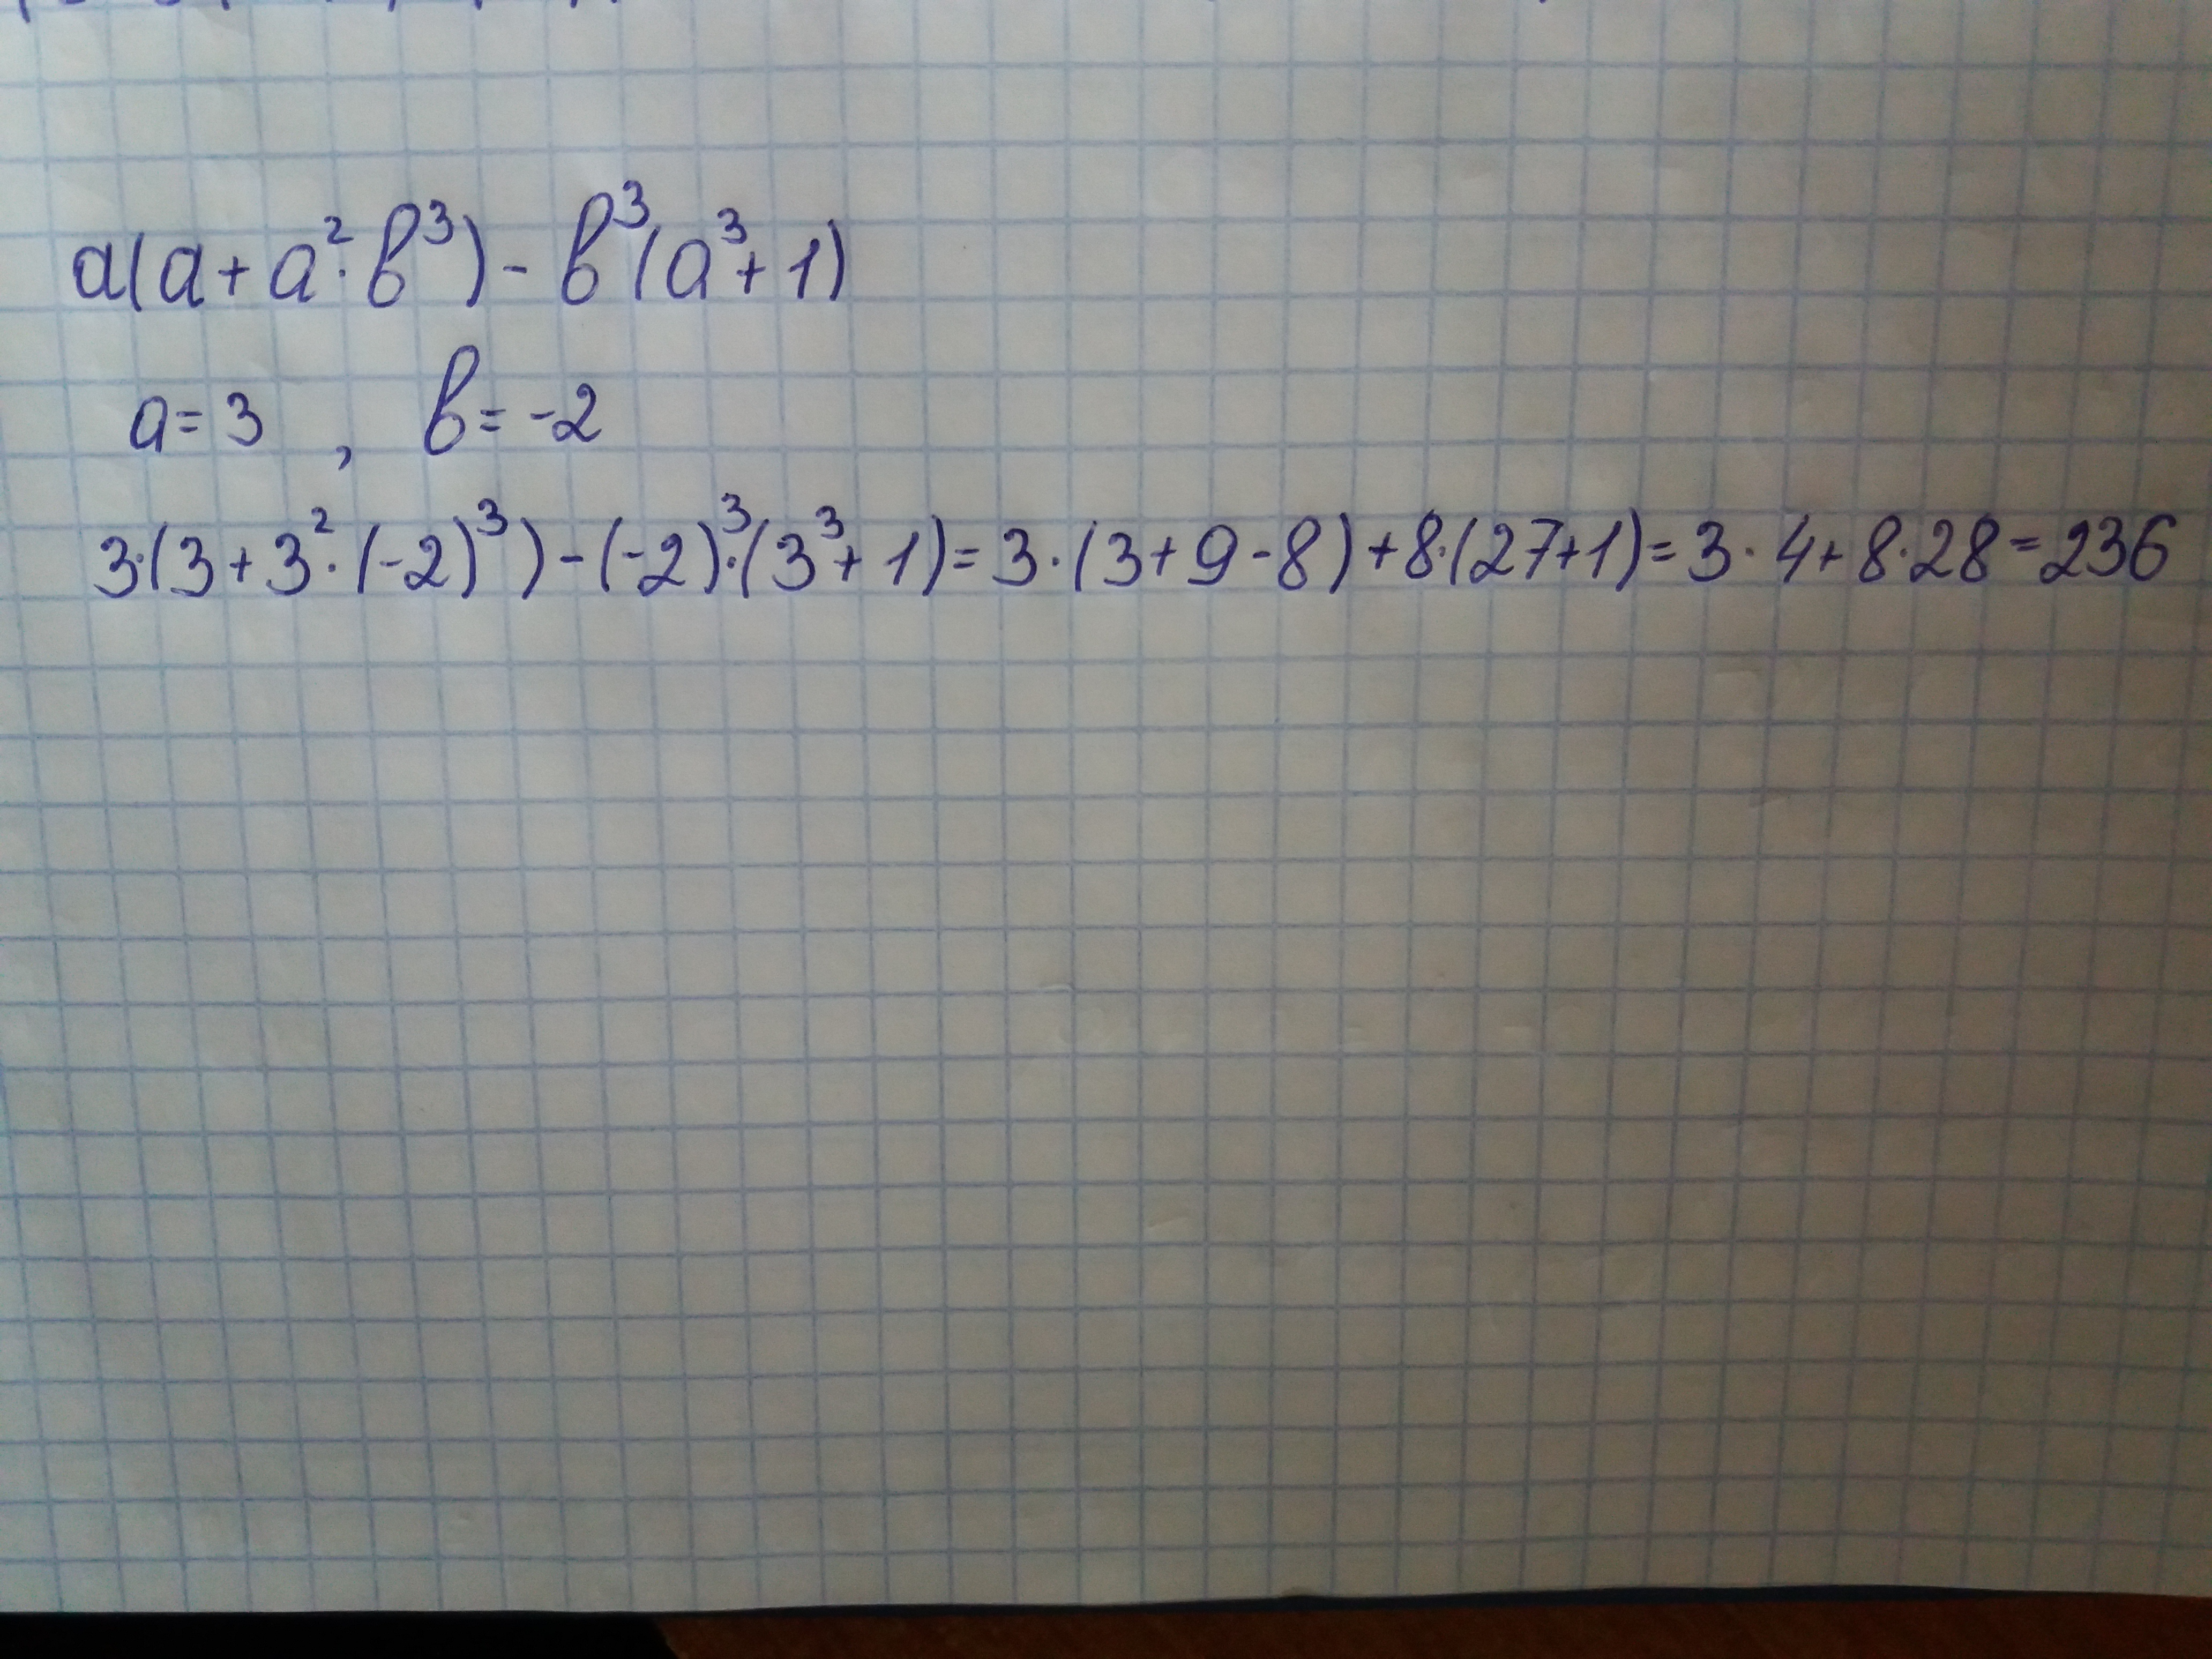 a(a+a²·b³)-b³(a³+1)
a=3 , b=-2
3·(3+3²·(-2)³)-(-2)³·(3³+1)=3·(3+9-8)+8·(27+1)=3·4+8·28=236